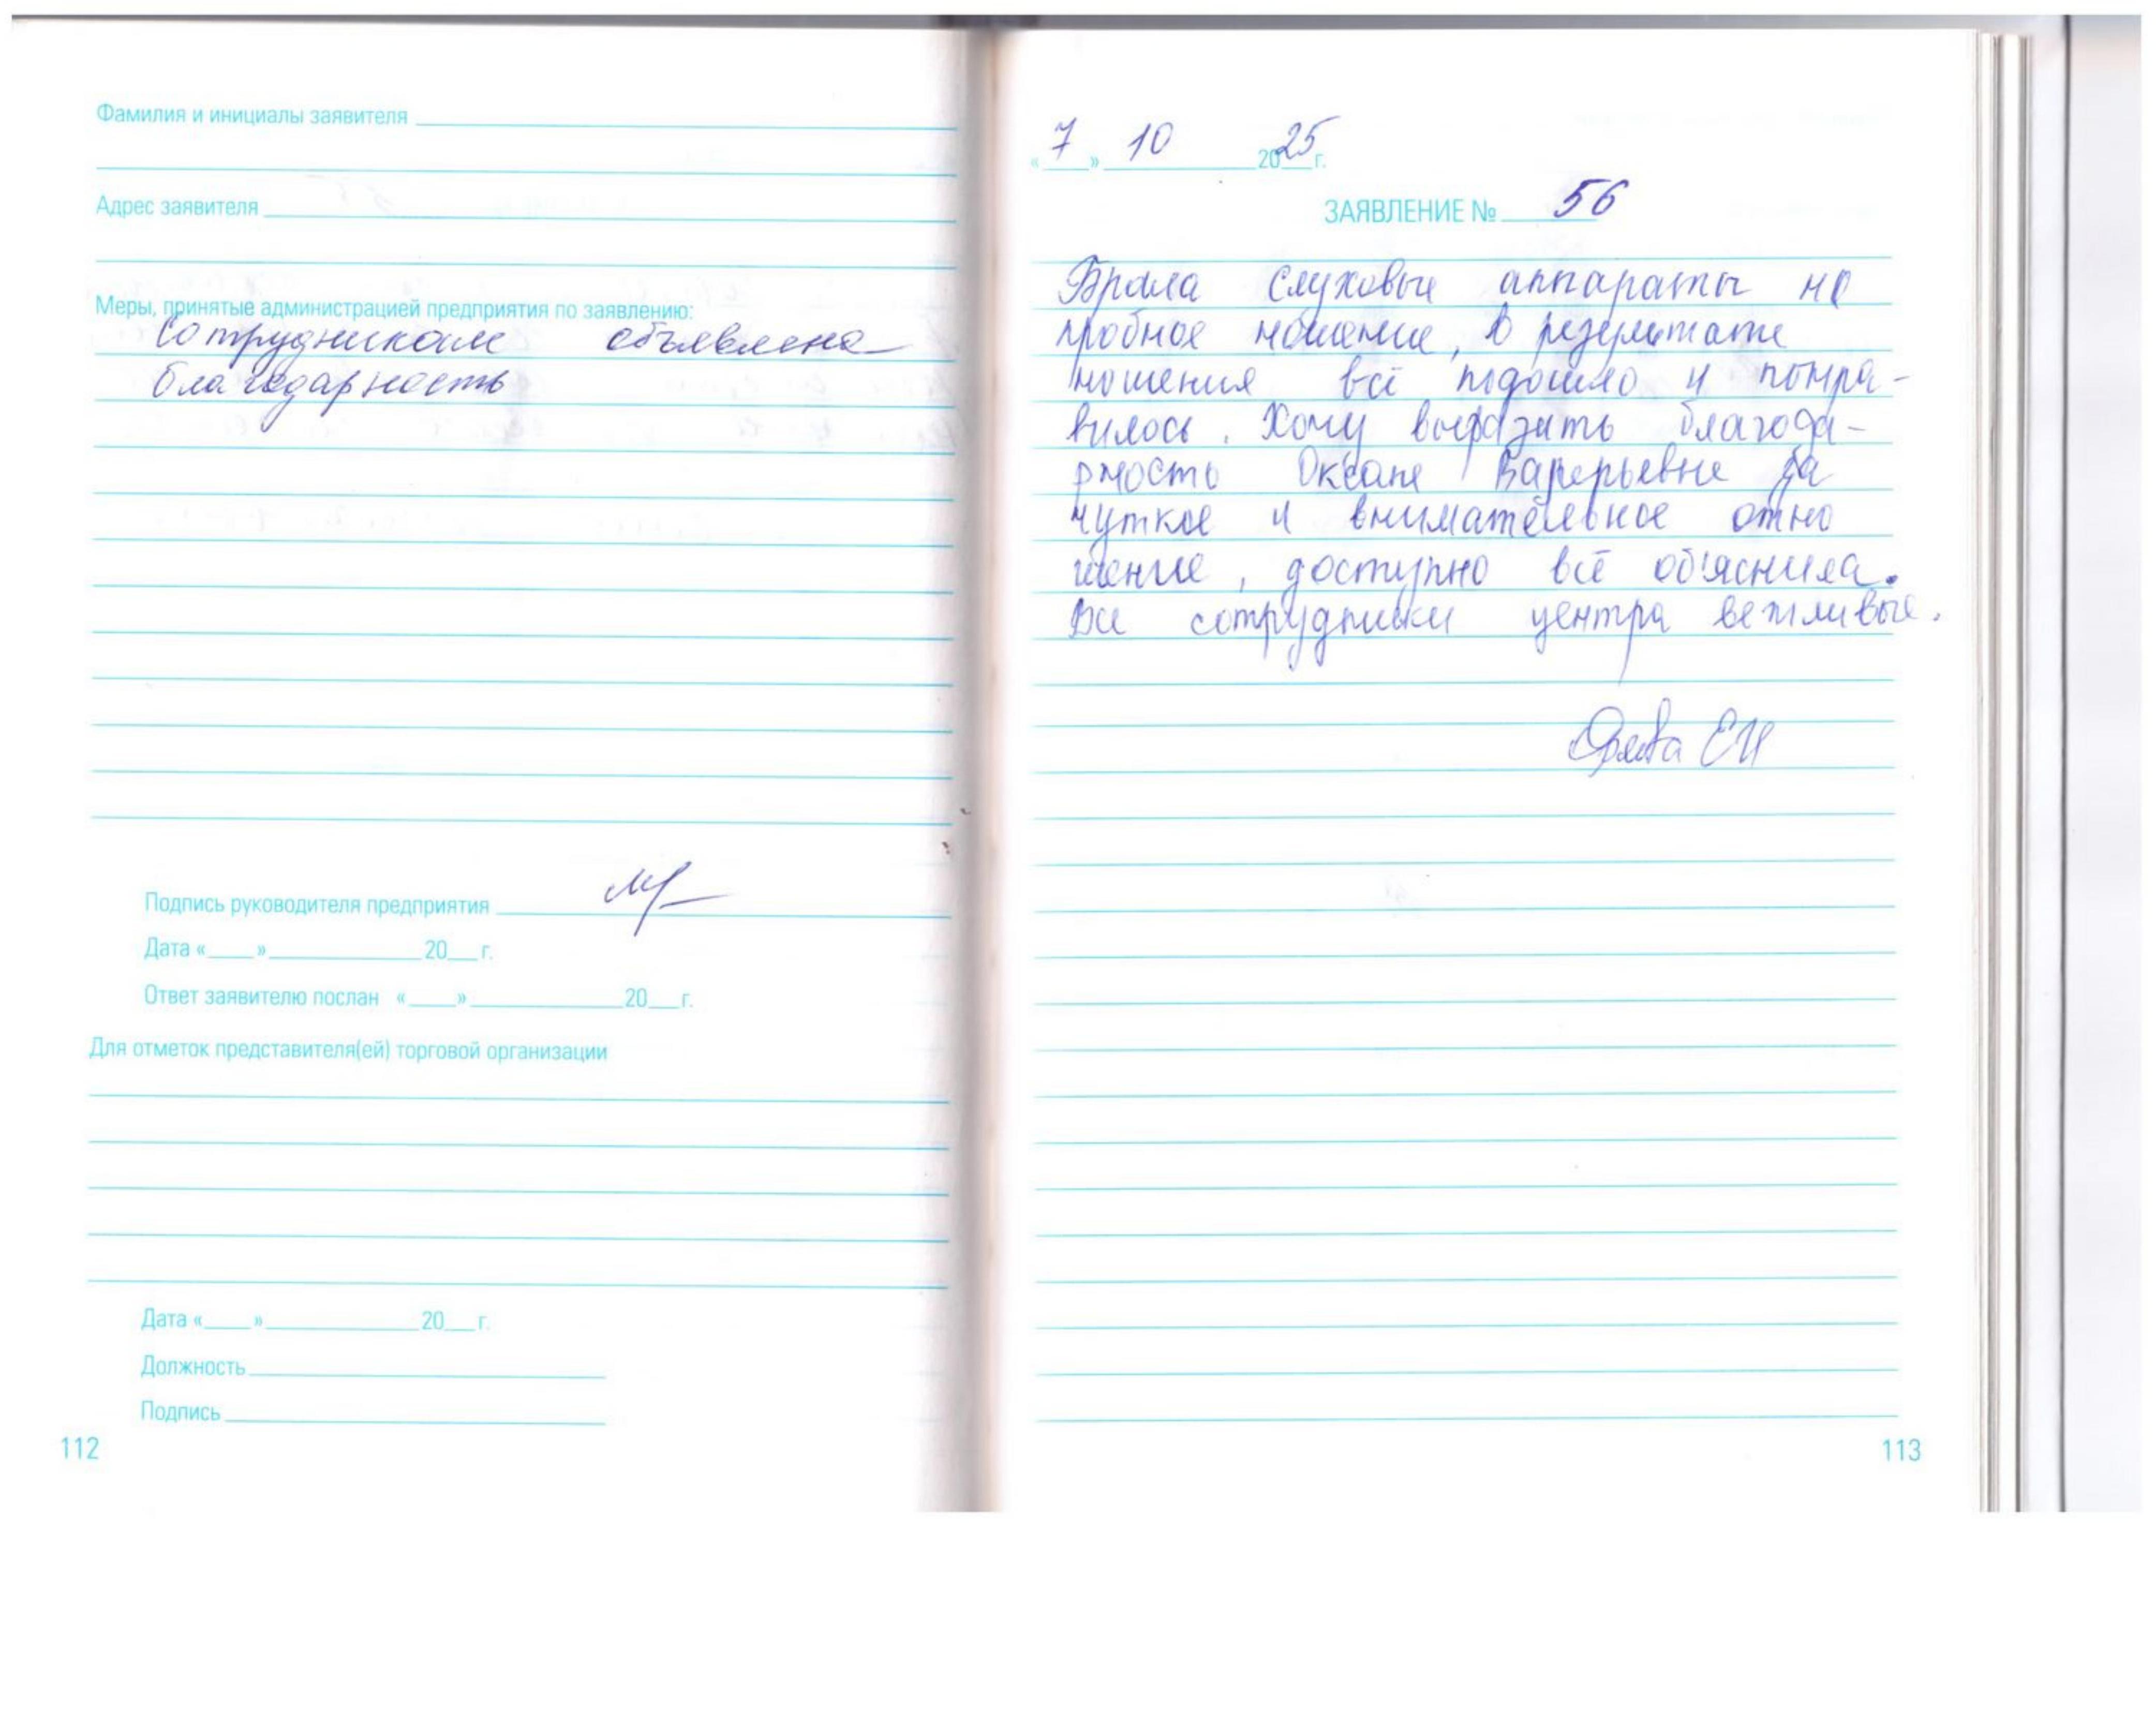 Фамилия и инициалы заявителя
Адрес заявителя
Меры, принятые администрацией предприятия по заявлению:
Сотрудникам объявлена
благодарность
Подпись руководителя предприятия
Дата «____» ____________ 20___г.
Ответ заявителю послан «____» ____________ 20___г.
Для отметок представителя(ей) торговой организации
Дата «____» ____________ 20___г.
Должность
Подпись
112
«7» 10 2025г.
ЗАЯВЛЕНИЕ № 56
Брала слуховые аппараты на
пробное ношение, в результате
ношения всё подошло и понра-
вилось. Хочу выразить благода-
рность Оксане Валерьевне за
чуткое и внимательное отно
шение, доступно всё об'яснила.
Все сотрудники центра вежливые.
ЕИ
113